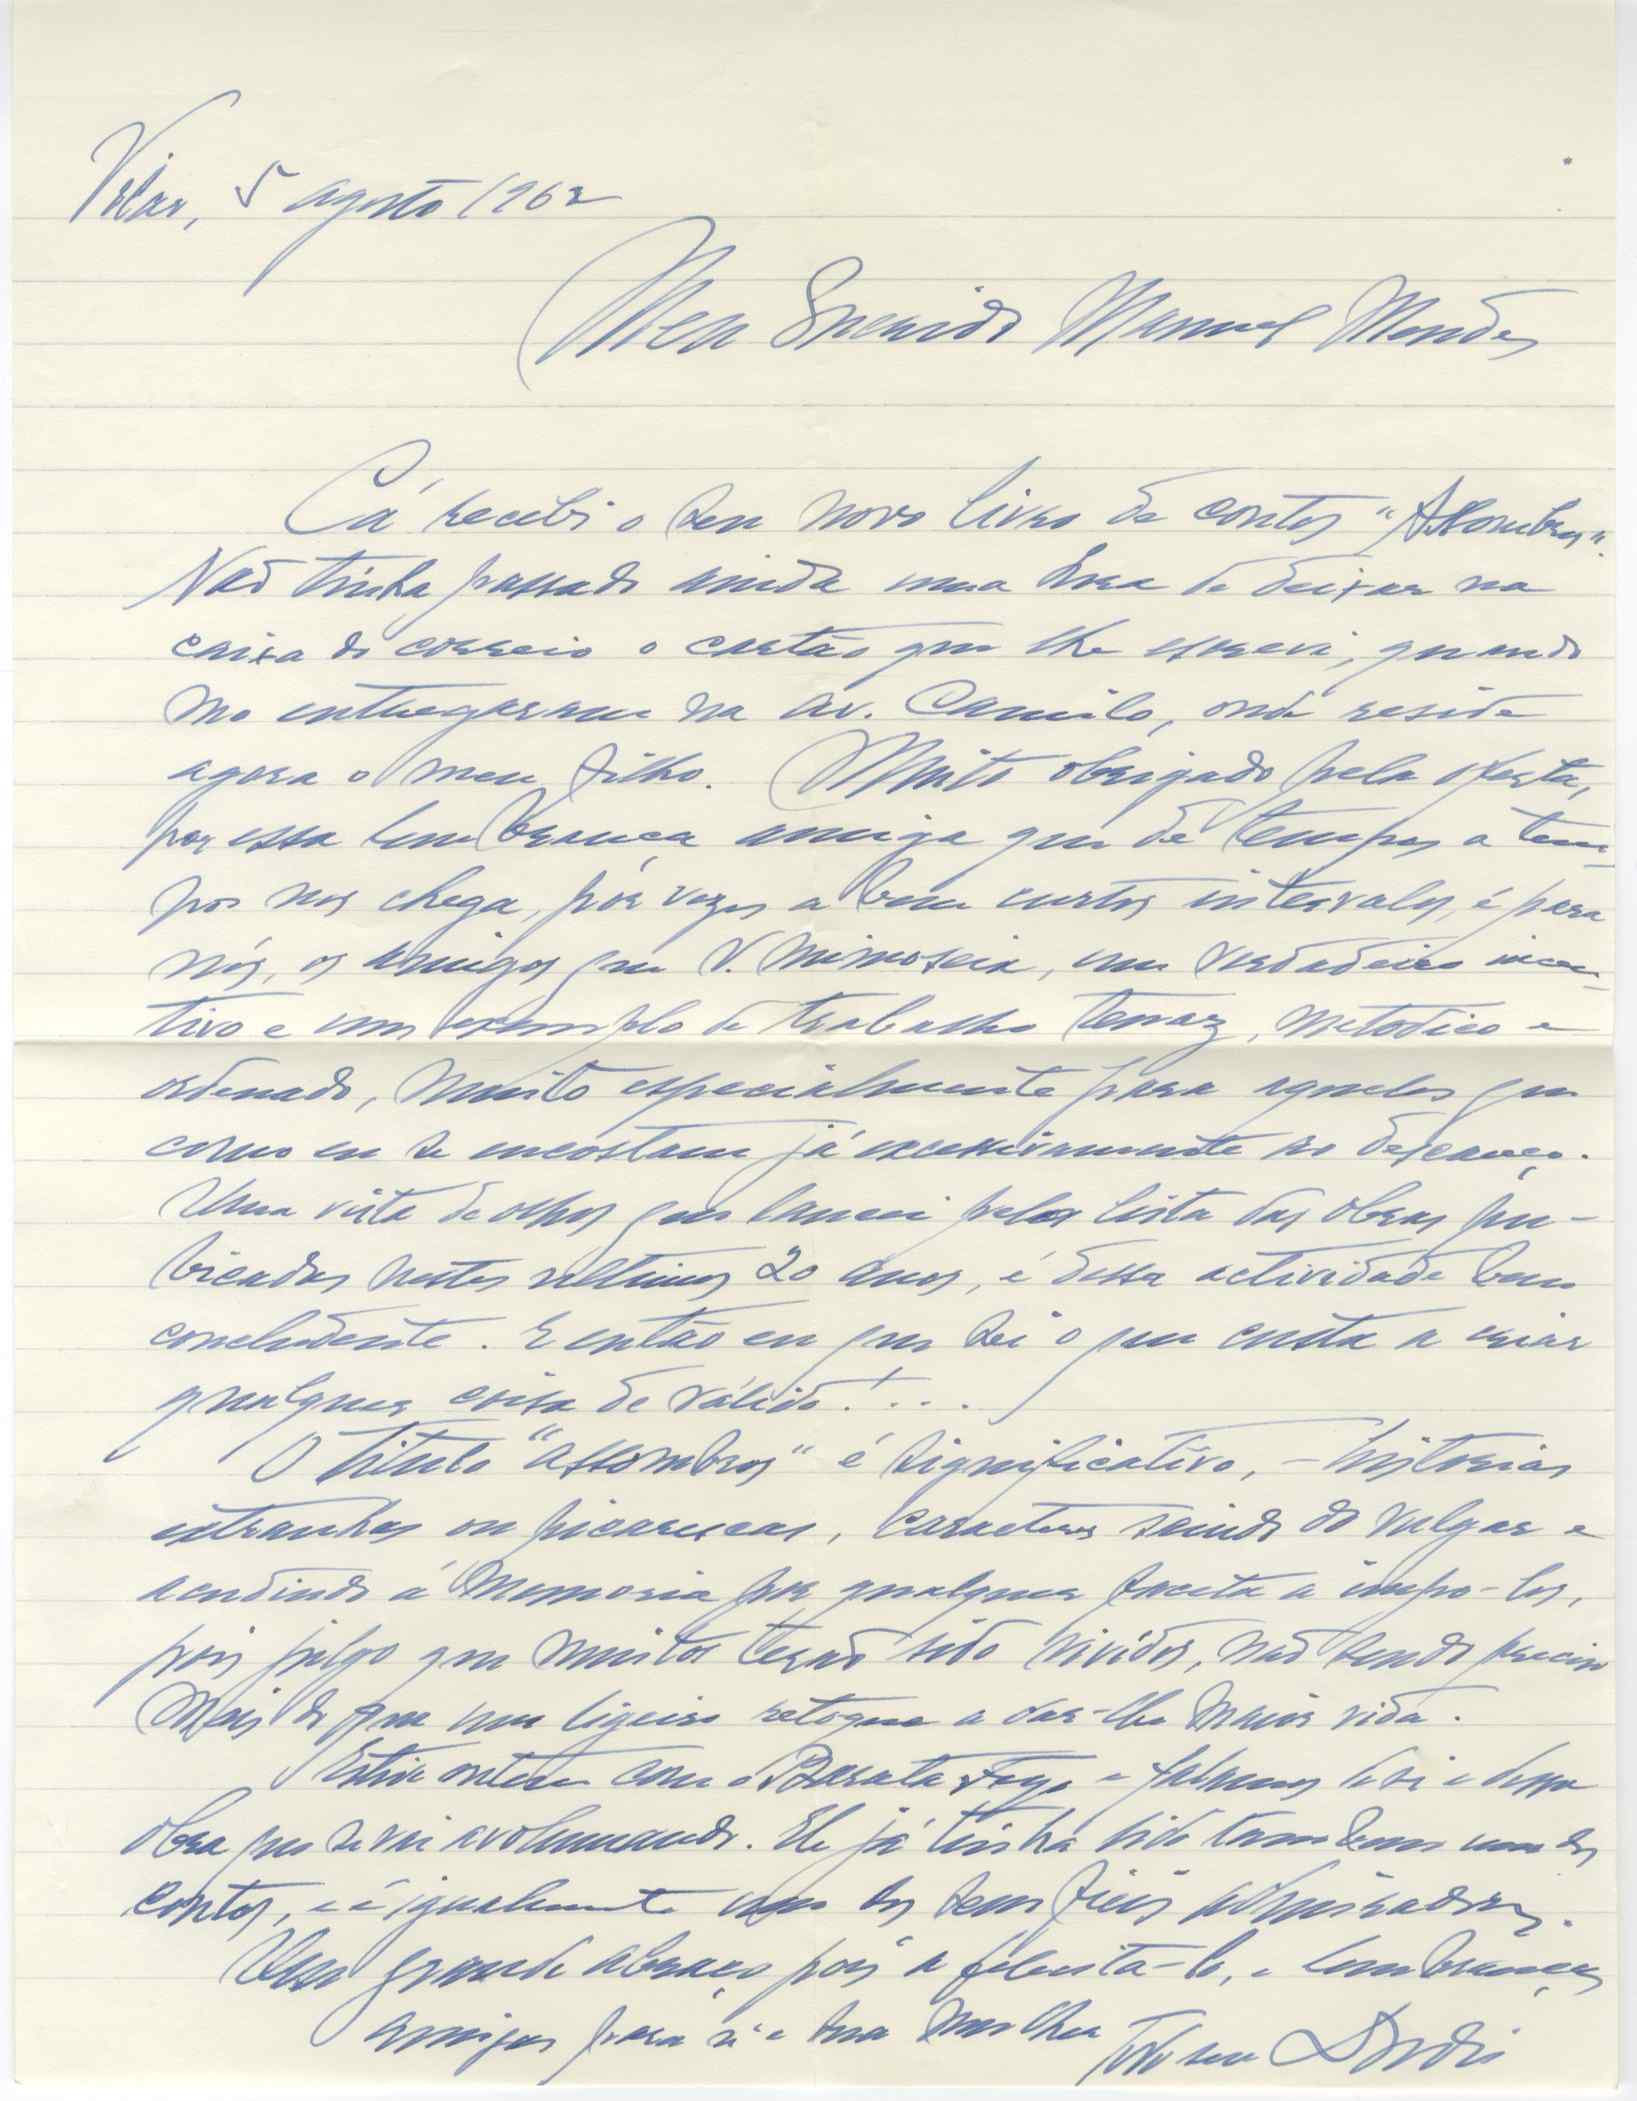 Vilar, 5 agosto 1962
Meu Querido Manuel Mendes
Cá recebi o seu novo livro de contos "Assombros".
Não tinha passado ainda uma hora de deixar na
caixa do correio o cartão que lhe escrevi, quando
mo entregaram na Av. Camilo, onde reside
agora o meu filho. Muito obrigado pela oferta,
por essa lembrança amiga que de tempos a tem-
pos nos chega, por vezes a bem curtos intervalos, é para
nós, os amigos que V. mimoseia, um verdadeiro incen-
tivo e um exemplo de trabalho tenaz, metodico e
ordenado, muito especialmente para aqueles que
como eu se encostam já excessivamente ao descanço.
Uma vista de olhos que lancei pela lista das obras pu-
blicadas nestes ultimos 20 anos, é dessa actividade bem
concludente. E então eu que sei o que custa a criar
qualquer coisa de válido!...
O titulo "Assombros" é significativo, - historias
extranhas ou picarescas, caracteres saindo do vulgar e
acudindo á memoria por qualquer faceta a impo-los,
pois julgo que muitos terão sido vividos, não sendo preciso
mais do que um ligeiro retoque a dar-lhe maior vida.
Estive ontem com o Barata Feyo e falamos de si e dessa
obra que se vai avolumando. Ele já tinha lido tambem um dos
contos, e é igualmente um dos seus fieis admiradores.
Um grande abraço, pois a felicita-lo, e lembranças
amigas para si e sua mulher Todo seu Dordio